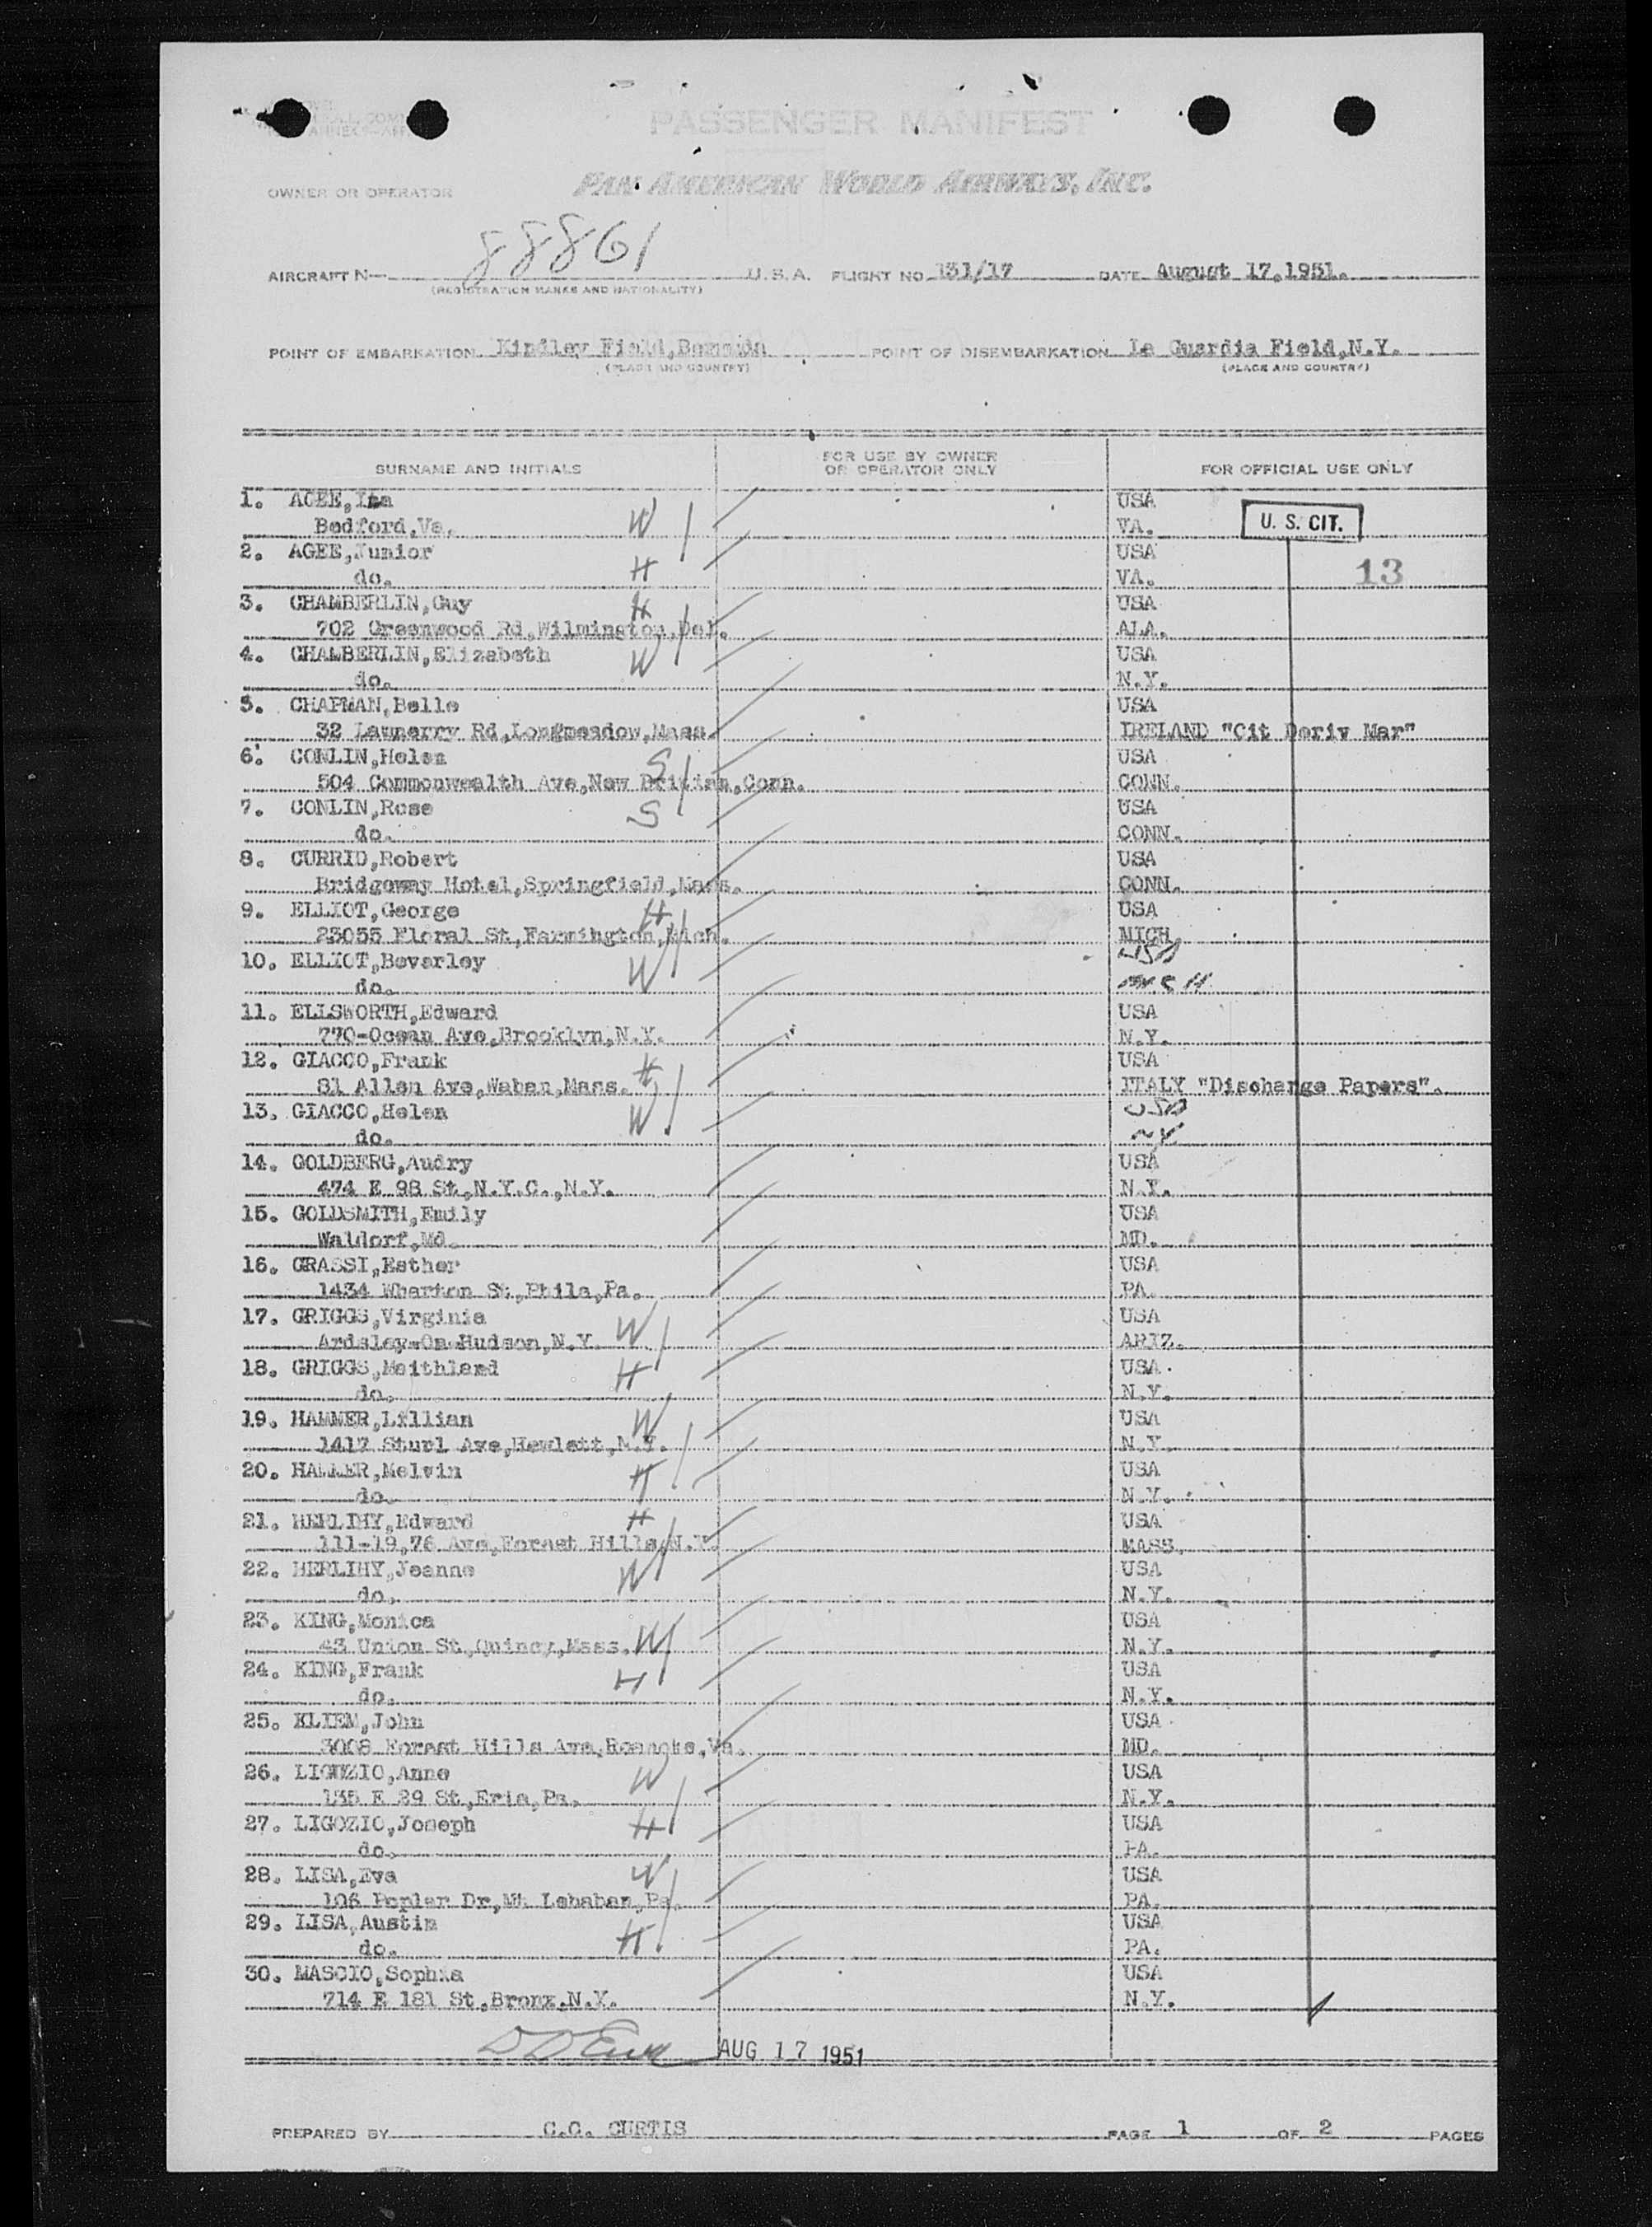 PASSENGER MANIFEST
OWNER OR OPERATOR PAN AMERICAN WORLD AIRWAYS, INC.
AIRCRAFT N— 88861 U.S.A. FLIGHT NO 131/17 DATE August 17,1951.
(REGISTRATION MARKS AND NATIONALITY)
POINT OF EMBARKATION Kindley Field,Bermuda POINT OF DISEMBARKATION La Guardia Field,N.Y.
(PLACE AND COUNTRY) (PLACE AND COUNTRY)
SURNAME AND INITIALS FOR USE BY OWNER OR OPERATOR ONLY FOR OFFICIAL USE ONLY
1. AGEE, USA
Bedford,Va. W VA. U. S. CIT.
2. AGEE,Junior USA
do. H VA. 13
3. CHAMBERLIN,Guy H USA
702 Greenwood Rd,Wilmington,Del. ALA.
4. CHAMBERLIN,Elizabeth W USA
do. N.Y.
5. CHAPMAN,Belle USA
32 Rd,Longmeadow,Mass. IRELAND "Cit Deriv Mar"
6. CONLIN,Helen S USA
504 Commonwealth Ave,New Britian,Conn. CONN.
7. CONLIN,Rose S USA
do. CONN.
8. CURRID,Robert USA
Bridgeway Hotel,Springfield,Mass. CONN.
9. ELLIOT,George H USA
23055 Floral St,Farmington,Mich. MICH.
10. ELLIOT,Beverley W USA
do. MICH
11. ELLSWORTH,Edward USA
770-Ocean Ave,Brooklyn,N.Y. N.Y.
12. GIACCO,Frank H USA
81 Allen Ave,Waban,Mass. ITALY "Discharge Papers".
13. GIACCO,Helen W USA
do. NY
14. GOLDBERG,Audry USA
474 E 98 St,N.Y.C.,N.Y. N.Y.
15. GOLDSMITH,Emily USA
Waldorf,Md. MD.
16. GRASSI,Esther USA
1434 Wharton St,Phila,Pa. PA.
17. GRIGGS,Virginia W USA
Ardsley-On-Hudson,N.Y. ARIZ.
18. GRIGGS,Maithland H USA
do. N.Y.
19. HAMMER,Lillian W USA
1417 Ave,Hewlett,N.Y. N.Y.
20. HAMMER,Melvin H USA
do. N.Y.
21. HERLIHY,Edward H USA
111-19,76 Ave,Forest Hills,N.Y. MASS.
22. HERLIHY,Jeanne W USA
do. N.Y.
23. KING,Monica USA
43 Union St,Quincy,Mass. W N.Y.
24. KING,Frank H USA
do. N.Y.
25. KLIEM,John USA
3008 Forest Hills Ave,Roanoke,Va. MD.
26. Anne W USA
135 E 29 St,Erie,Pa. N.Y.
27. LIGOZIO,Joseph H USA
do. PA.
28. LISA,Eva W USA
106 Poplar Dr,Mt Lebaban,Pa. PA.
29. LISA,Austin H USA
do. PA.
30. MASCIO,Sophia USA
714 E 181 St,Bronx,N.Y. N.Y.
AUG 17 1951
PREPARED BY C.C. CURTIS PAGE 1 OF 2 PAGES